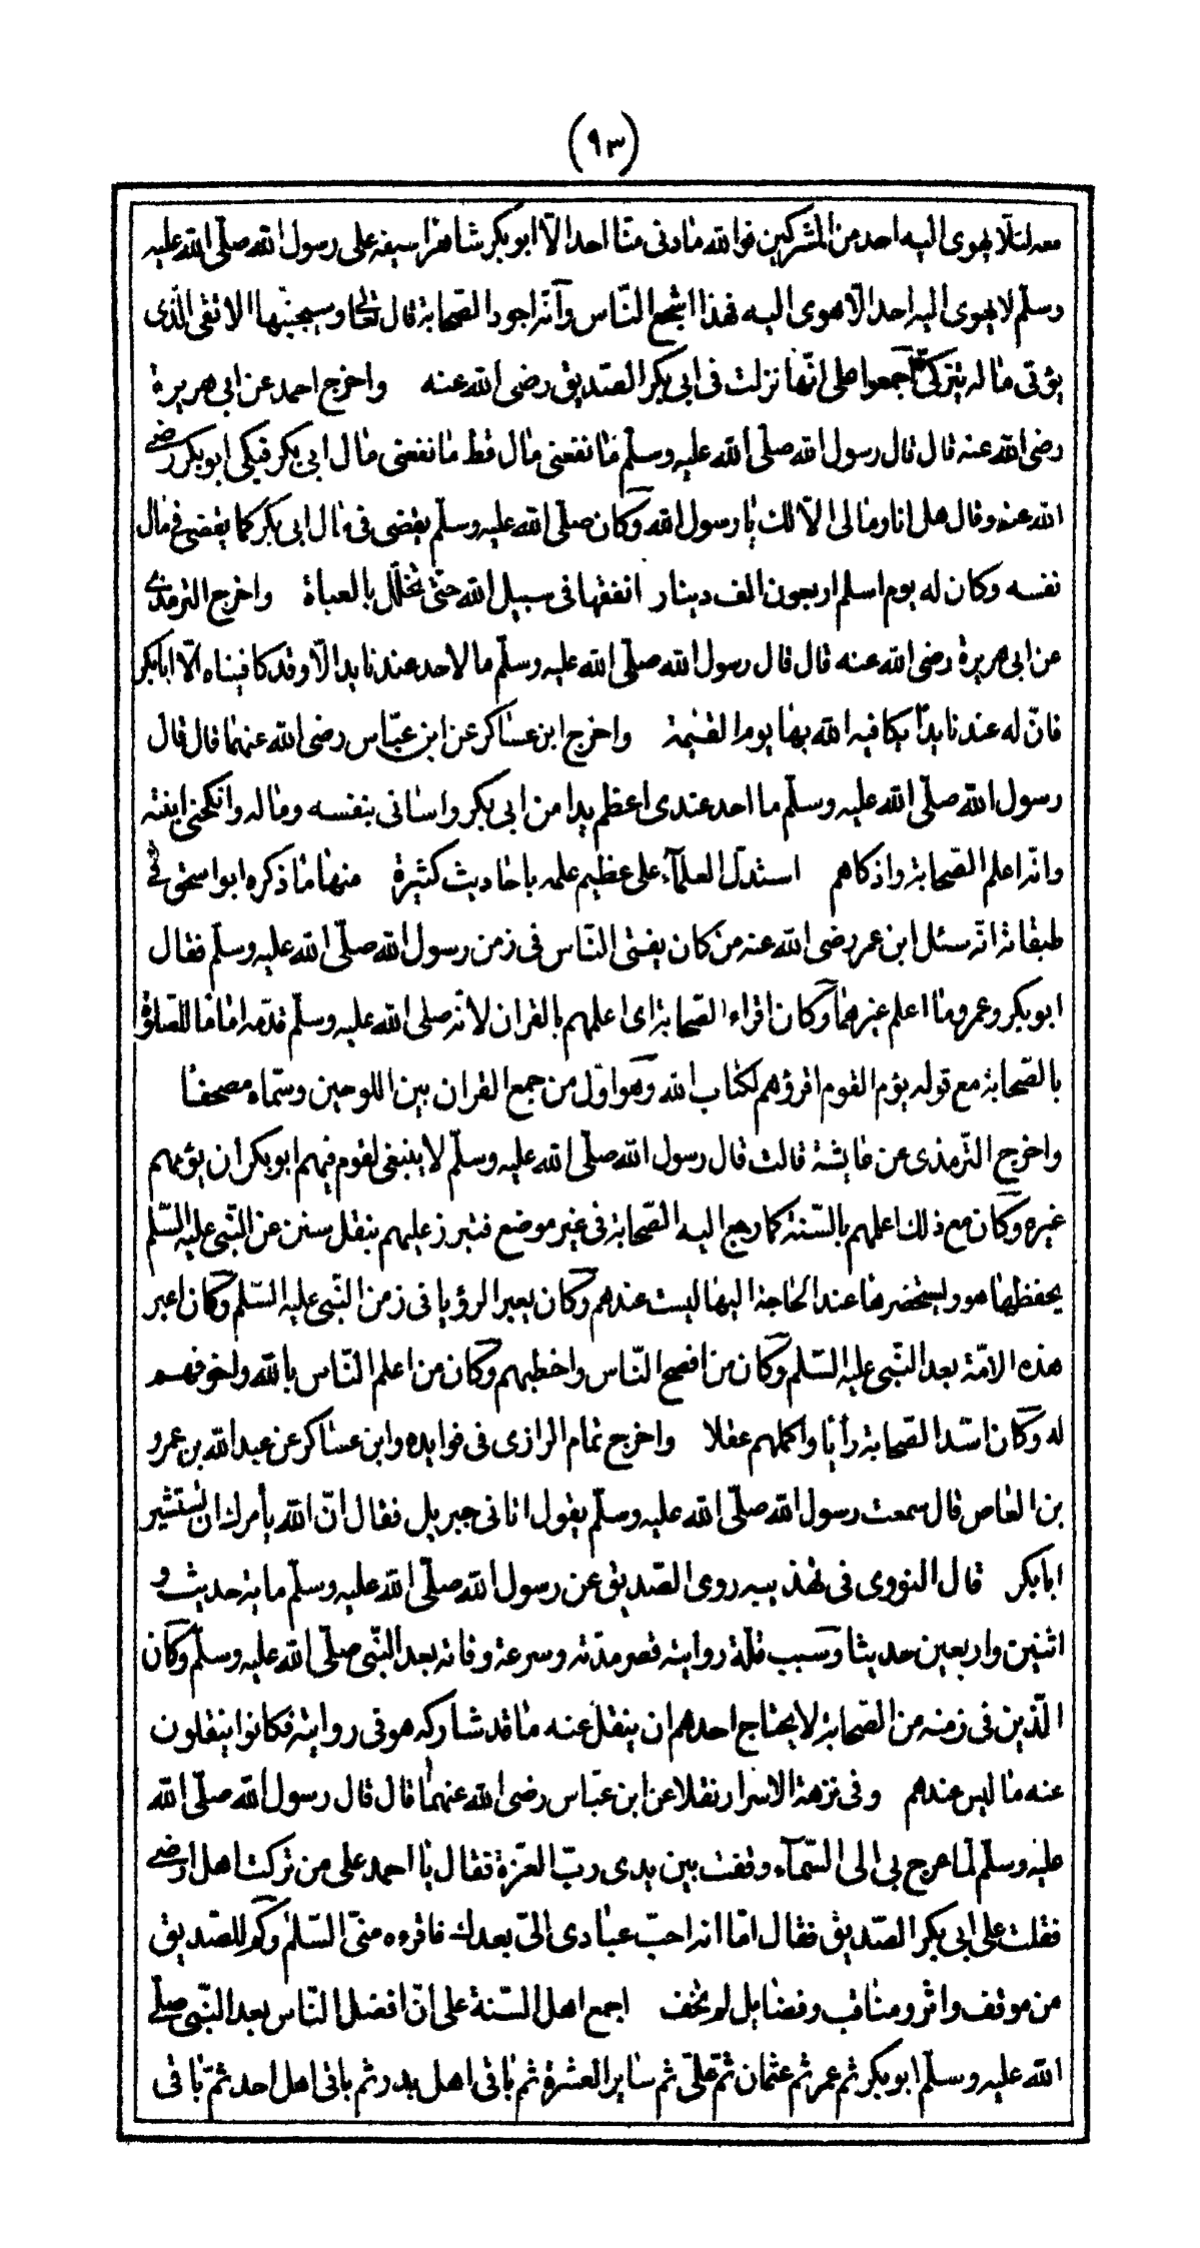 (٩٣)
معه لئلّا يهوى اليه احد من المشركين فوالله ما دنى منّا احد الّا ابو بكر شاهرا سيفه على رسول الله صلّى الله عليه
وسلّم لا يهوى اليه احد الّا هوى اليه فهذا اشجع النّاس وانّه اجود الصّحابة قال تعالى وسيجنّبها الاتقى الّذى
يؤتى ماله يتزكّى اجمعوا على انّها نزلت فى ابى بكر الصّديق رضى الله عنه واخرج احمد عن ابى هريرة
رضى الله عنه قال قال رسول الله صلّى الله عليه وسلّم ما نفعنى مال قط ما نفعنى مال ابى بكر فبكى ابو بكر رضى
الله عنه وقال هل انا ومالى الّا لك يا رسول الله وكان صلّى الله عليه وسلّم يقضى فى مال ابى بكر كما يقضى فى مال
نفسه وكان له يوم اسلم اربعون الف دينار انفقها فى سبيل الله حتّى تخلّل بالعباة واخرج الترمذى
عن ابى هريرة رضى الله عنه قال قال رسول الله صلّى الله عليه وسلّم ما لاحد عندنا يدا الّا وقد كافيناه الّا ابا بكر
فانّ له عندنا يدا يكافيه الله بها يوم القيٰمة واخرج ابن عساكر عن ابن عبّاس رضى الله عنهما قال قال
رسول الله صلّى الله عليه وسلّم ما احد عندى اعظم يدا من ابى بكر واسانى بنفسه وماله وانكحنى ابنته
وانّه اعلم الصّحابة واذكاهم استدلّ العلمآء على عظيم علمه باحاديث كثيرة منها ما ذكره ابو اسحق فى
طبقاته انّه سئل ابن عمر رضى الله عنه من كان يفتى النّاس فى زمن رسول الله صلّى الله عليه وسلّم فقال
ابو بكر وعمر وما اعلم غيرهما وكان اقراء الصّحابة اى اعلمهم بالقران لانّه صلى الله عليه وسلّم قدّمه اماما للصّلوة
بالصّحابة مع قوله يؤم القوم اقرؤهم لكتاب الله وهو اوّل من جمع القران بين اللوحين وسمّاه مصحفا
واخرج التّرمذى عن عايشة قالت قال رسول الله صلّى الله عليه وسلّم لا ينبغى لقوم فيهم ابو بكر ان يؤمهم
غيره وكان مع ذلك اعلمهم بالسّنة كما رجع اليه الصّحابة فى غير موضع فتبرز عليهم بنقل سنن عن النّبى عليه السّلم
يحفظها هو ويستحضرها عند الحاجة اليها ليست عندهم وكان يعبر الرؤيا فى زمن النّبى عليه السّلم وكان اعبر
هذه الامّة بعد النّبى عليه السّلم وكان من افصح النّاس واخطبهم وكان من اعلم النّاس بالله واخوفهم
له وكان اسدّ الصّحابة رأيا واكملهم عقلا واخرج تمام الرازى فى فوايده وابن عساكر عن عبد الله بن عمرو
بن العاص قال سمعت رسول الله صلّى الله عليه وسلّم يقول اتانى جبريل فقال انّ الله يأمرك ان تستشير
ابا بكر قال النووى فى تهذيبه روى الصّديق عن رسول الله صلّى الله عليه وسلّم ماية حديث و
اثنين واربعين حديثا وسبب قلّة روايته قصر مدّته وسرعة وفاته بعد النّبى صلّى الله عليه وسلّم وكان
الّذين فى زمنه من الصّحابة لا يحتاج احدهم ان ينقل عنه ما قد شاركه هو فى روايته فكانوا ينقلون
عنه ما ليس عندهم وفى نزهة الاسرار نقلا عن ابن عبّاس رضى الله عنهما قال قال رسول الله صلّى الله
عليه وسلّم لما عرج بى الى السّمآء وقفت بين يدى ربّ العزّة فقال يا احمد على من تركت اهل ارضى
فقلت على ابى بكر الصّديق فقال امّا انه احبّ عبادى الىّ بعدك فاقرءه منّى السّلم وكم للصّديق
من موقف واثر ومناقب وفضايل لم تخف اجمع اهل السّنة على انّ افضل النّاس بعد النّبى صلّى
الله عليه وسلّم ابو بكر ثم عمر ثم عثمان ثمّ علىّ ثم ساير العشرة ثم باقى اهل بدر ثم باقى اهل احد ثمّ باقى